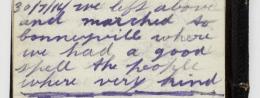 30/7/16 we left above
and marched to
bonneyville where
we had a good
spell the people
where very kind